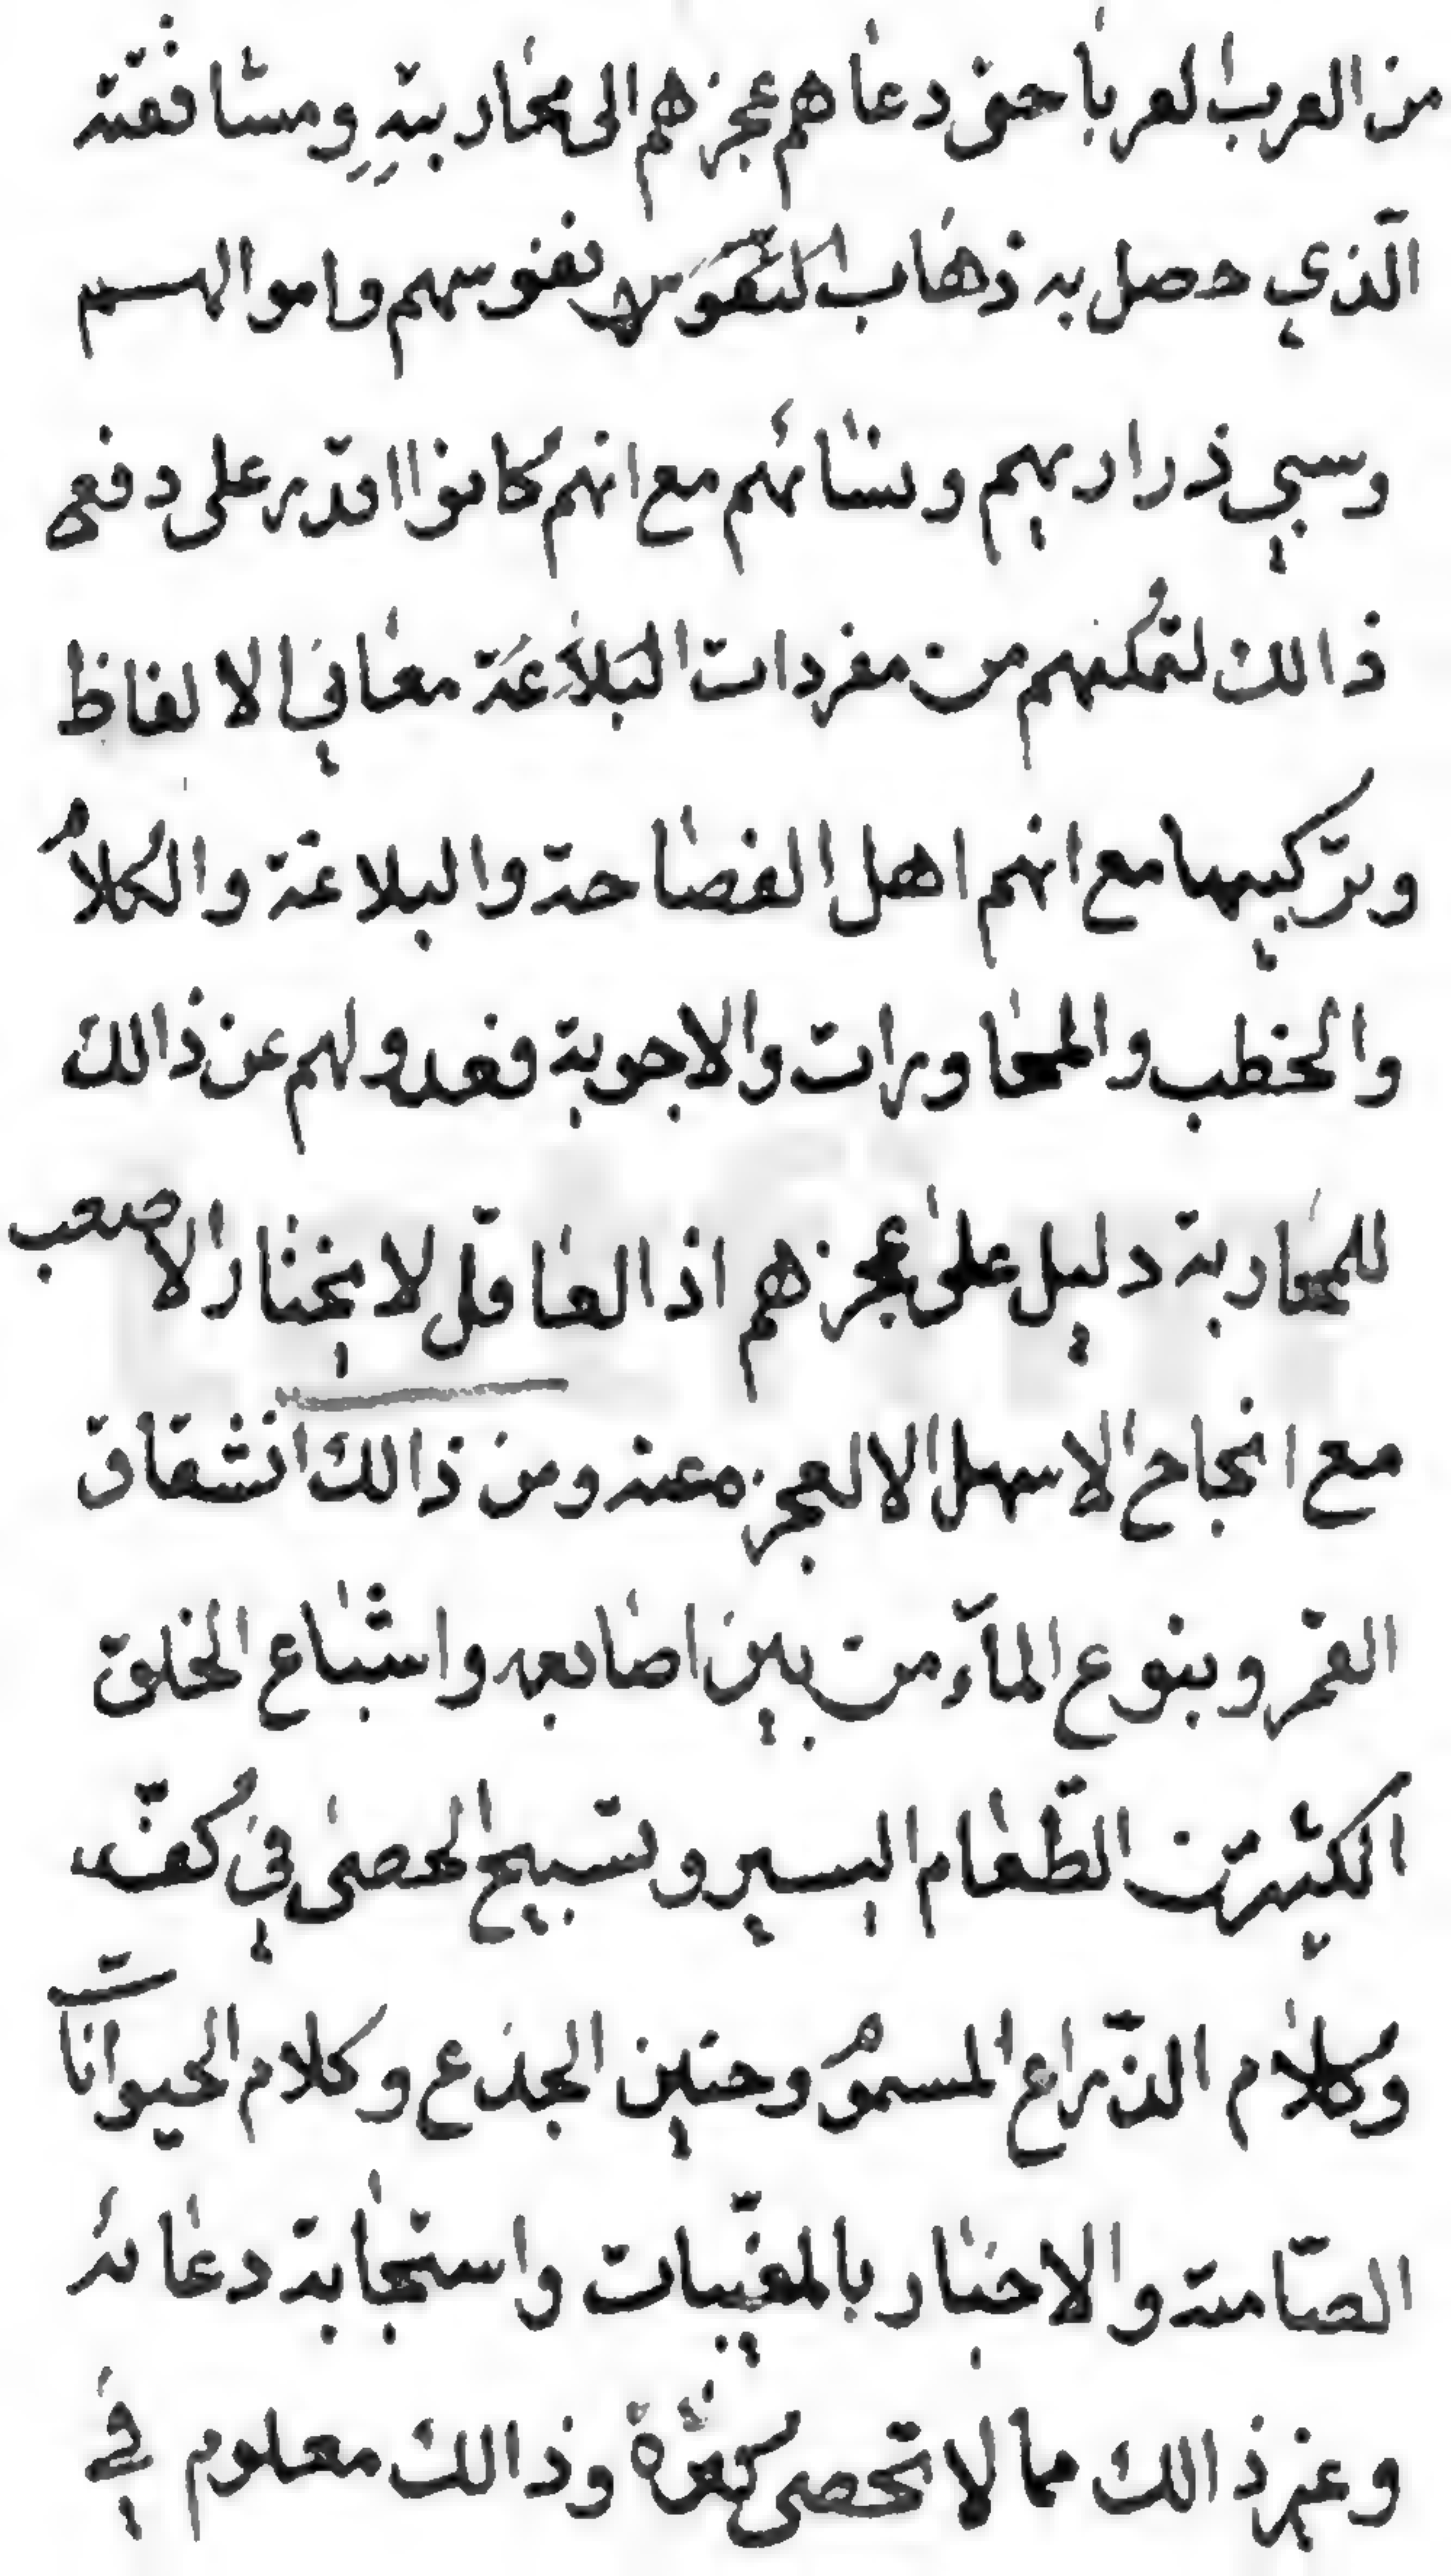 من العرب العربا حتى دعاهم عجزهم الى محاربته ومشاققته
الّذي حصل به ذهاب النفوس نفوسهم واموالهم
وسبي ذراريهم ونسائهم مع انهم كانوا اقدر على دفع
ذالك لتمكنهم من مفردات البلاغة معاني الالفاظ
وتركيبها مع انهم اهل الفصاحة والبلاغة والكلام
والخطب والمحاورات والاجوبة فعدولهم عن ذالك
للمحاربة دليل على عجزهم اذ العاقل لا يختار الاصعب
مع انجاح الاسهل الا لعجزه عنه ومن ذالك انشقاق
القمر وينوع المآء من بين اصابعه واشباع الخلق
الكثير من الطّعام اليسير وتسبيح الحصى في كفّه
وكلام الذّراع المسموم وحنين الجذع وكلام الحيوانات
الصّامتة والاخبار بالمغيّبات واستجابة دعائه
وغير ذالك مما لا تحصى كثرة وذالك معلوم في